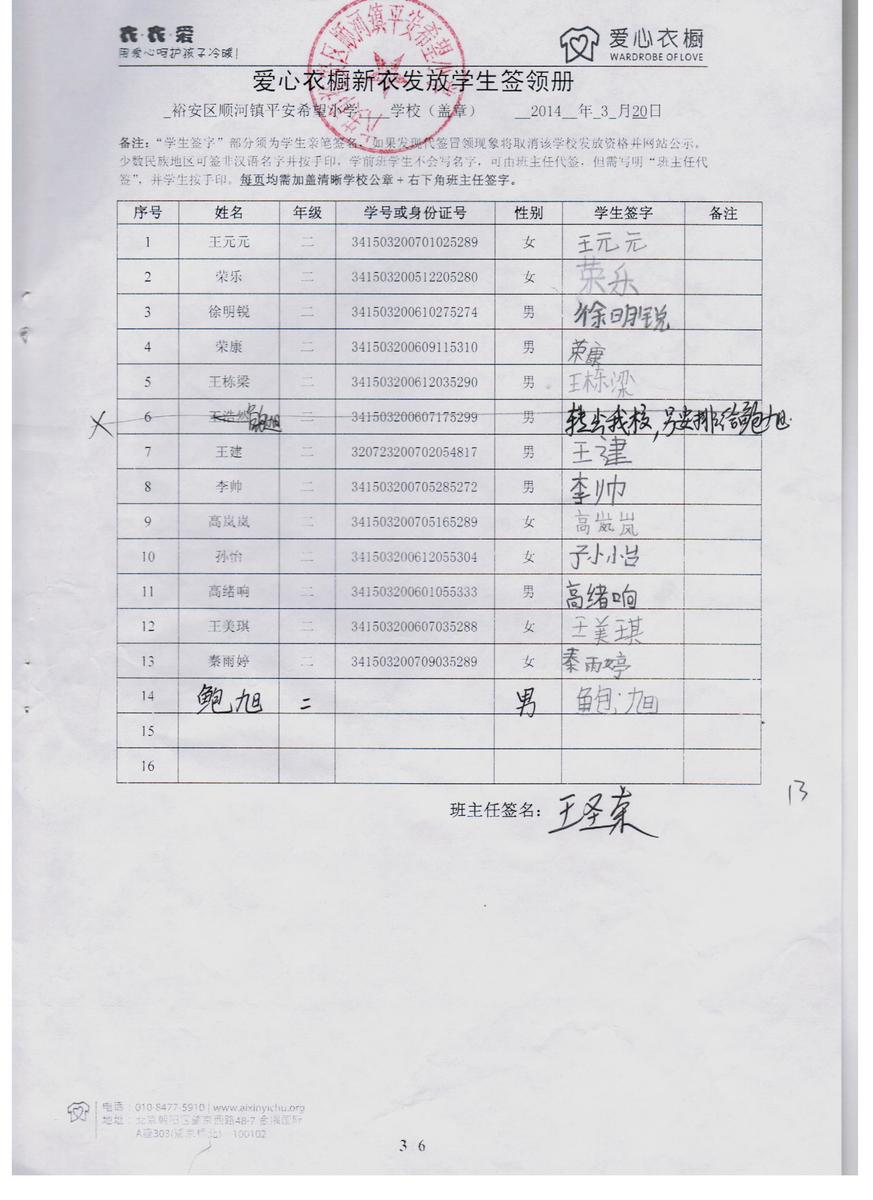 衣·衣·爱
用爱心呵护孩子冷暖!
爱心衣橱
WARDROBE OF LOVE
爱心衣橱新衣发放学生签领册
_裕安区顺河镇平安希望小学____学校（盖章） __2014__年_3_月20日
备注：“学生签字”部分须为学生亲笔签名，如果发现代签冒领现象将取消该学校发放资格并网站公示。
少数民族地区可签非汉语名字并按手印。学前班学生不会写名字，可由班主任代签，但需写明“班主任代
签”，并学生按手印。每页均需加盖清晰学校公章+右下角班主任签字。
序号 姓名 年级 学号或身份证号 性别 学生签字 备注
1 王元元 二 341503200701025289 女 王元元
2 荣乐 二 341503200512205280 女 荣乐
3 徐明锐 二 341503200610275274 男 徐明锐
4 荣康 二 341503200609115310 男 荣康
5 王栋梁 二 341503200612035290 男 王栋梁
X 6 王浩然 鲍旭 二 341503200607175299 男 转出我校，另安排给鲍旭.
7 王建 二 320723200702054817 男 王建
8 李帅 二 341503200705285272 男 李帅
9 高岚岚 二 341503200705165289 女 高岚岚
10 孙怡 二 341503200612055304 女 孙怡
11 高绪响 二 341503200601055333 男 高绪响
12 王美琪 二 341503200607035288 女 王美琪
13 秦雨婷 二 341503200709035289 女 秦雨婷
14 鲍旭 二 男 鲍旭
15
16
班主任签名：王圣荣
13
电话：010-8477-5910 | www.aixinyichu.org
地址：北京朝阳区望京西路48-7 金隅国际
A座303(望京桥北) 100102
36